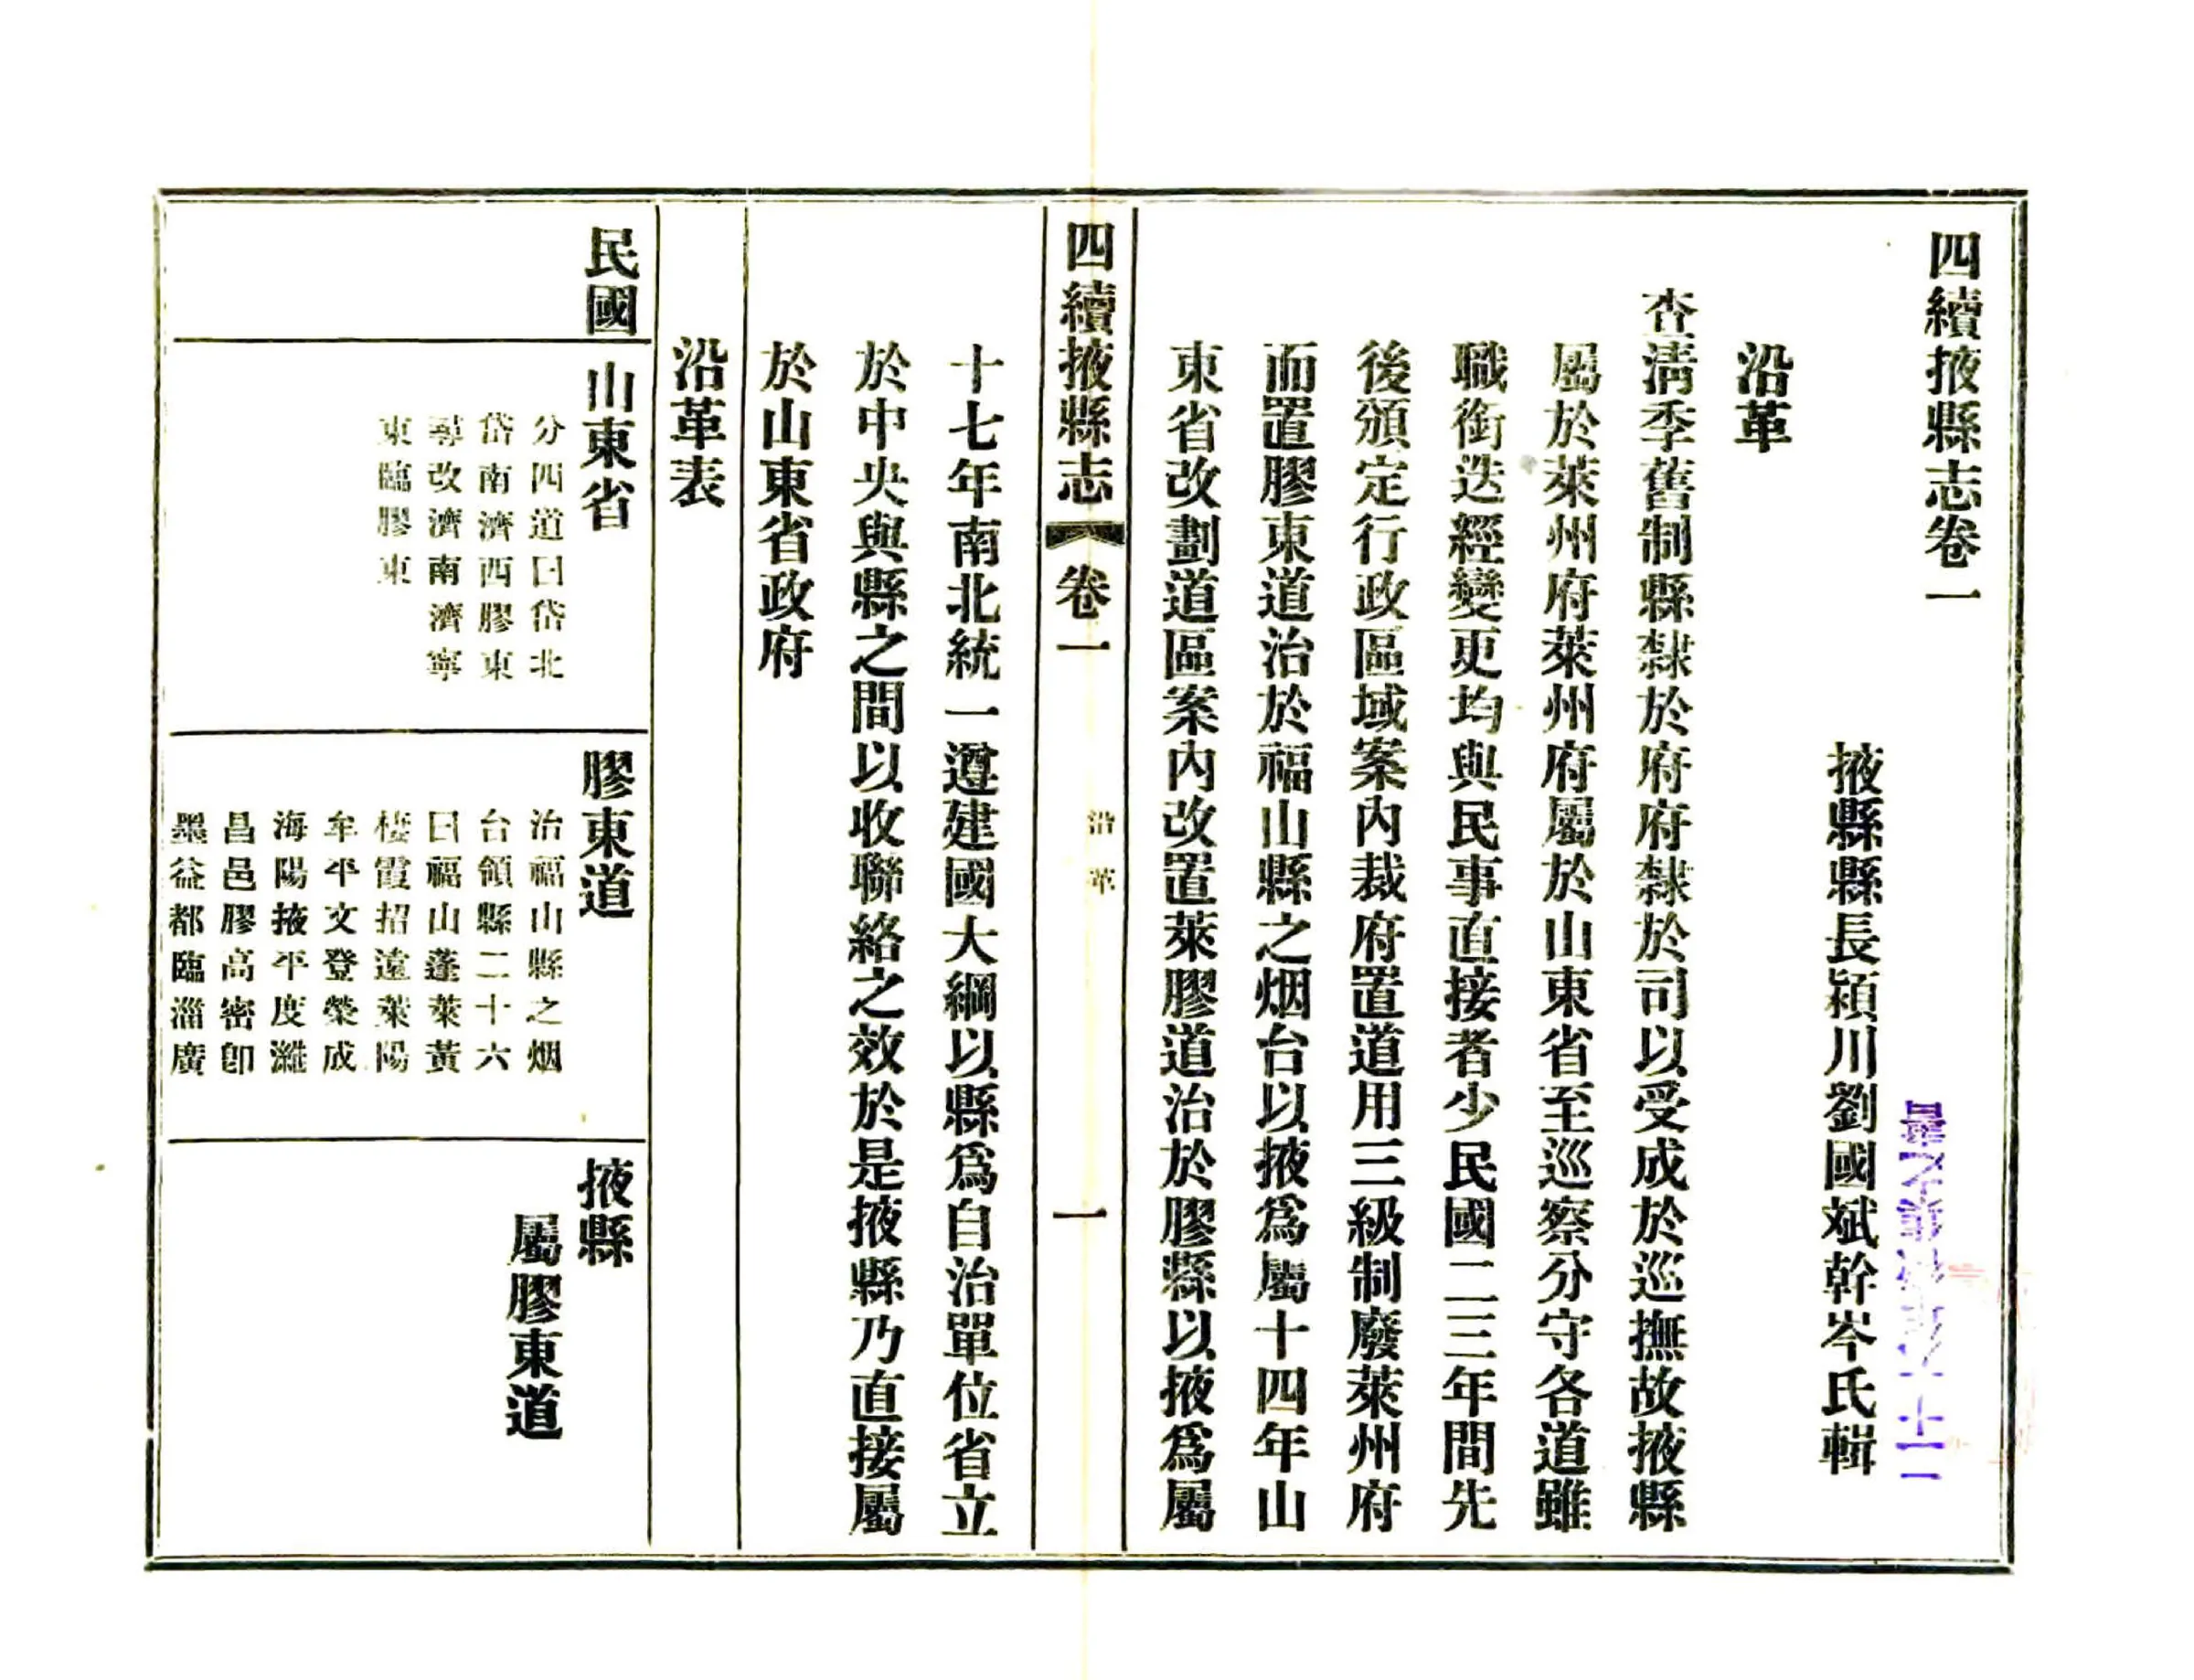 四續掖縣志卷一
掖縣縣長潁川劉國斌幹岑氏輯
沿革
查清季舊制縣隸於府府隸於司以受成於巡撫故掖縣
屬於萊州府萊州府屬於山東省至巡察分守各道雖
職銜迭經變更均與民事直接者少民國二三年間先
後頒定行政區域案內裁府置道用三級制廢萊州府
而置膠東道治於福山縣之烟台以掖爲屬十四年山
東省改劃道區案內改置萊膠道治於膠縣以掖爲屬
四續掖縣志
卷一
沿革
一
十七年南北統一遵建國大綱以縣爲自治單位省立
於中央與縣之間以收聯絡之效於是掖縣乃直接屬
於山東省政府
沿革表
民國
山東省
分四道曰岱北
岱南濟西膠東
尋改濟南濟寧
東臨膠東
膠東道
治福山縣之烟
台領縣二十六
曰福山蓬萊黃
棲霞招遠萊陽
牟平文登榮成
海陽掖平度濰
昌邑膠高密卽
墨益都臨淄廣
掖縣
屬膠東道